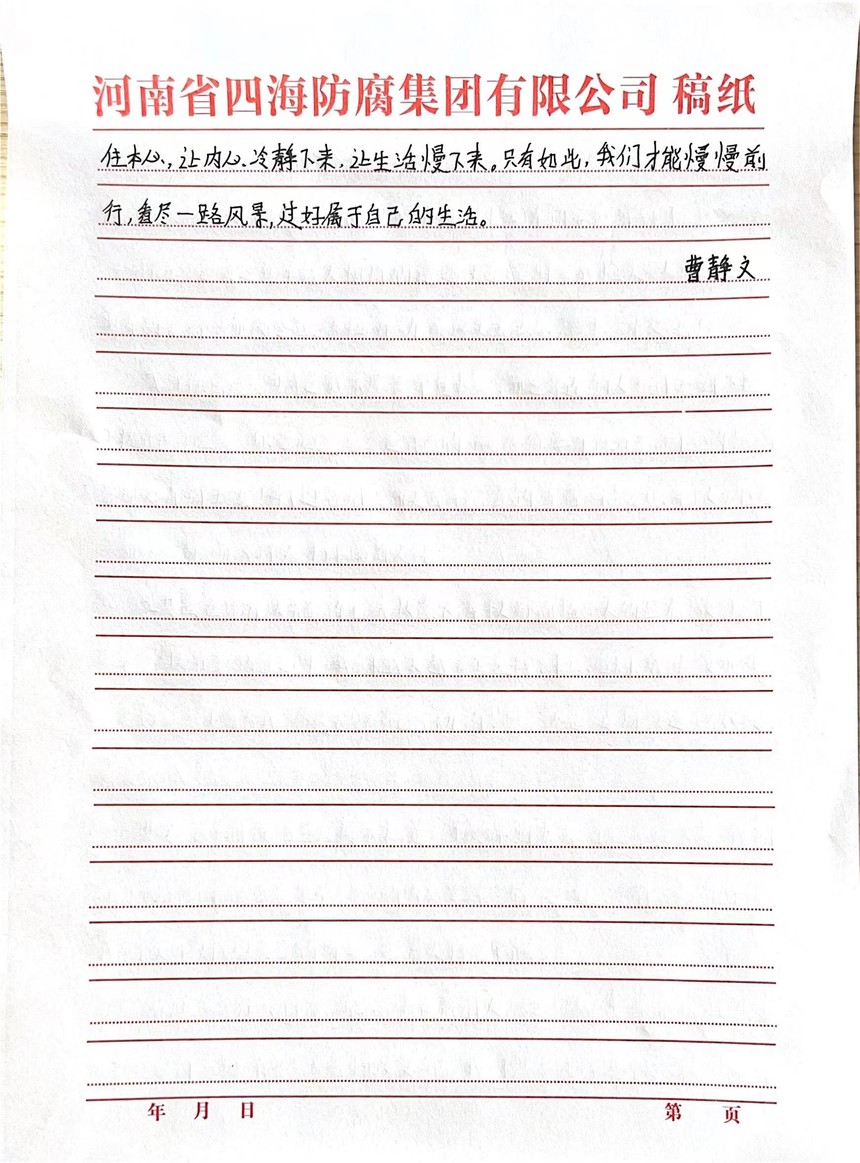 河南省四海防腐集团有限公司 稿纸
住本心,让内心冷静下来,让生活慢下来。只有如此,我们才能慢慢前
行,看尽一路风景,过好属于自己的生活。
曹静文
年 月 日 第 页